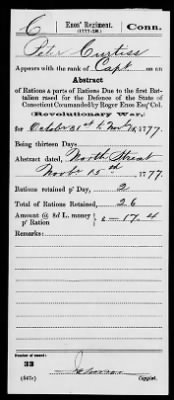 C | Enos' Regiment. (1777-78.) | Conn.
Peter Curtiss
Appears with the rank of Capt. on an
Abstract
of Rations a parts of Rations Due to the first Bat-
talion rased for the Defence of the State of
Conecticut Commanded by Roger Enos Esqr Col.
(Revolutionary War,)
for October 31st to Novbr 1777.
Being thirteen Days
Abstract dated, North Street
Novbr 15th, 1777.
Rations retained p'r day, 2
Total of Rations Retained, 26
Amount @ 8d L. money p'r Ration } 0-17.4
Remarks:
Number of record:
33
Copyist.